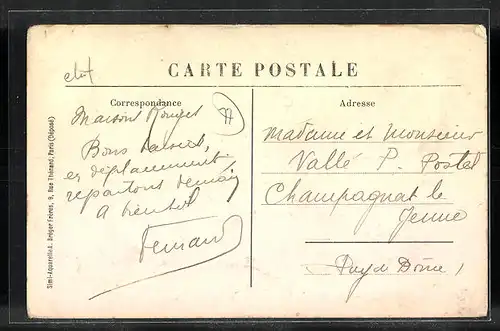 CARTE POSTALE
Correspondance
Adresse
Simi-Aquarelle A. Bréger Frères, 9, Rue Thénard, Paris (Déposé)
77
Maison Rouges
Bons baisers,
en déplacement
repartons demain
A bientot
Fernand
Madame et Monsieur
Vallé P. Postel
Champagnat le
Jeune
Puy de Dôme